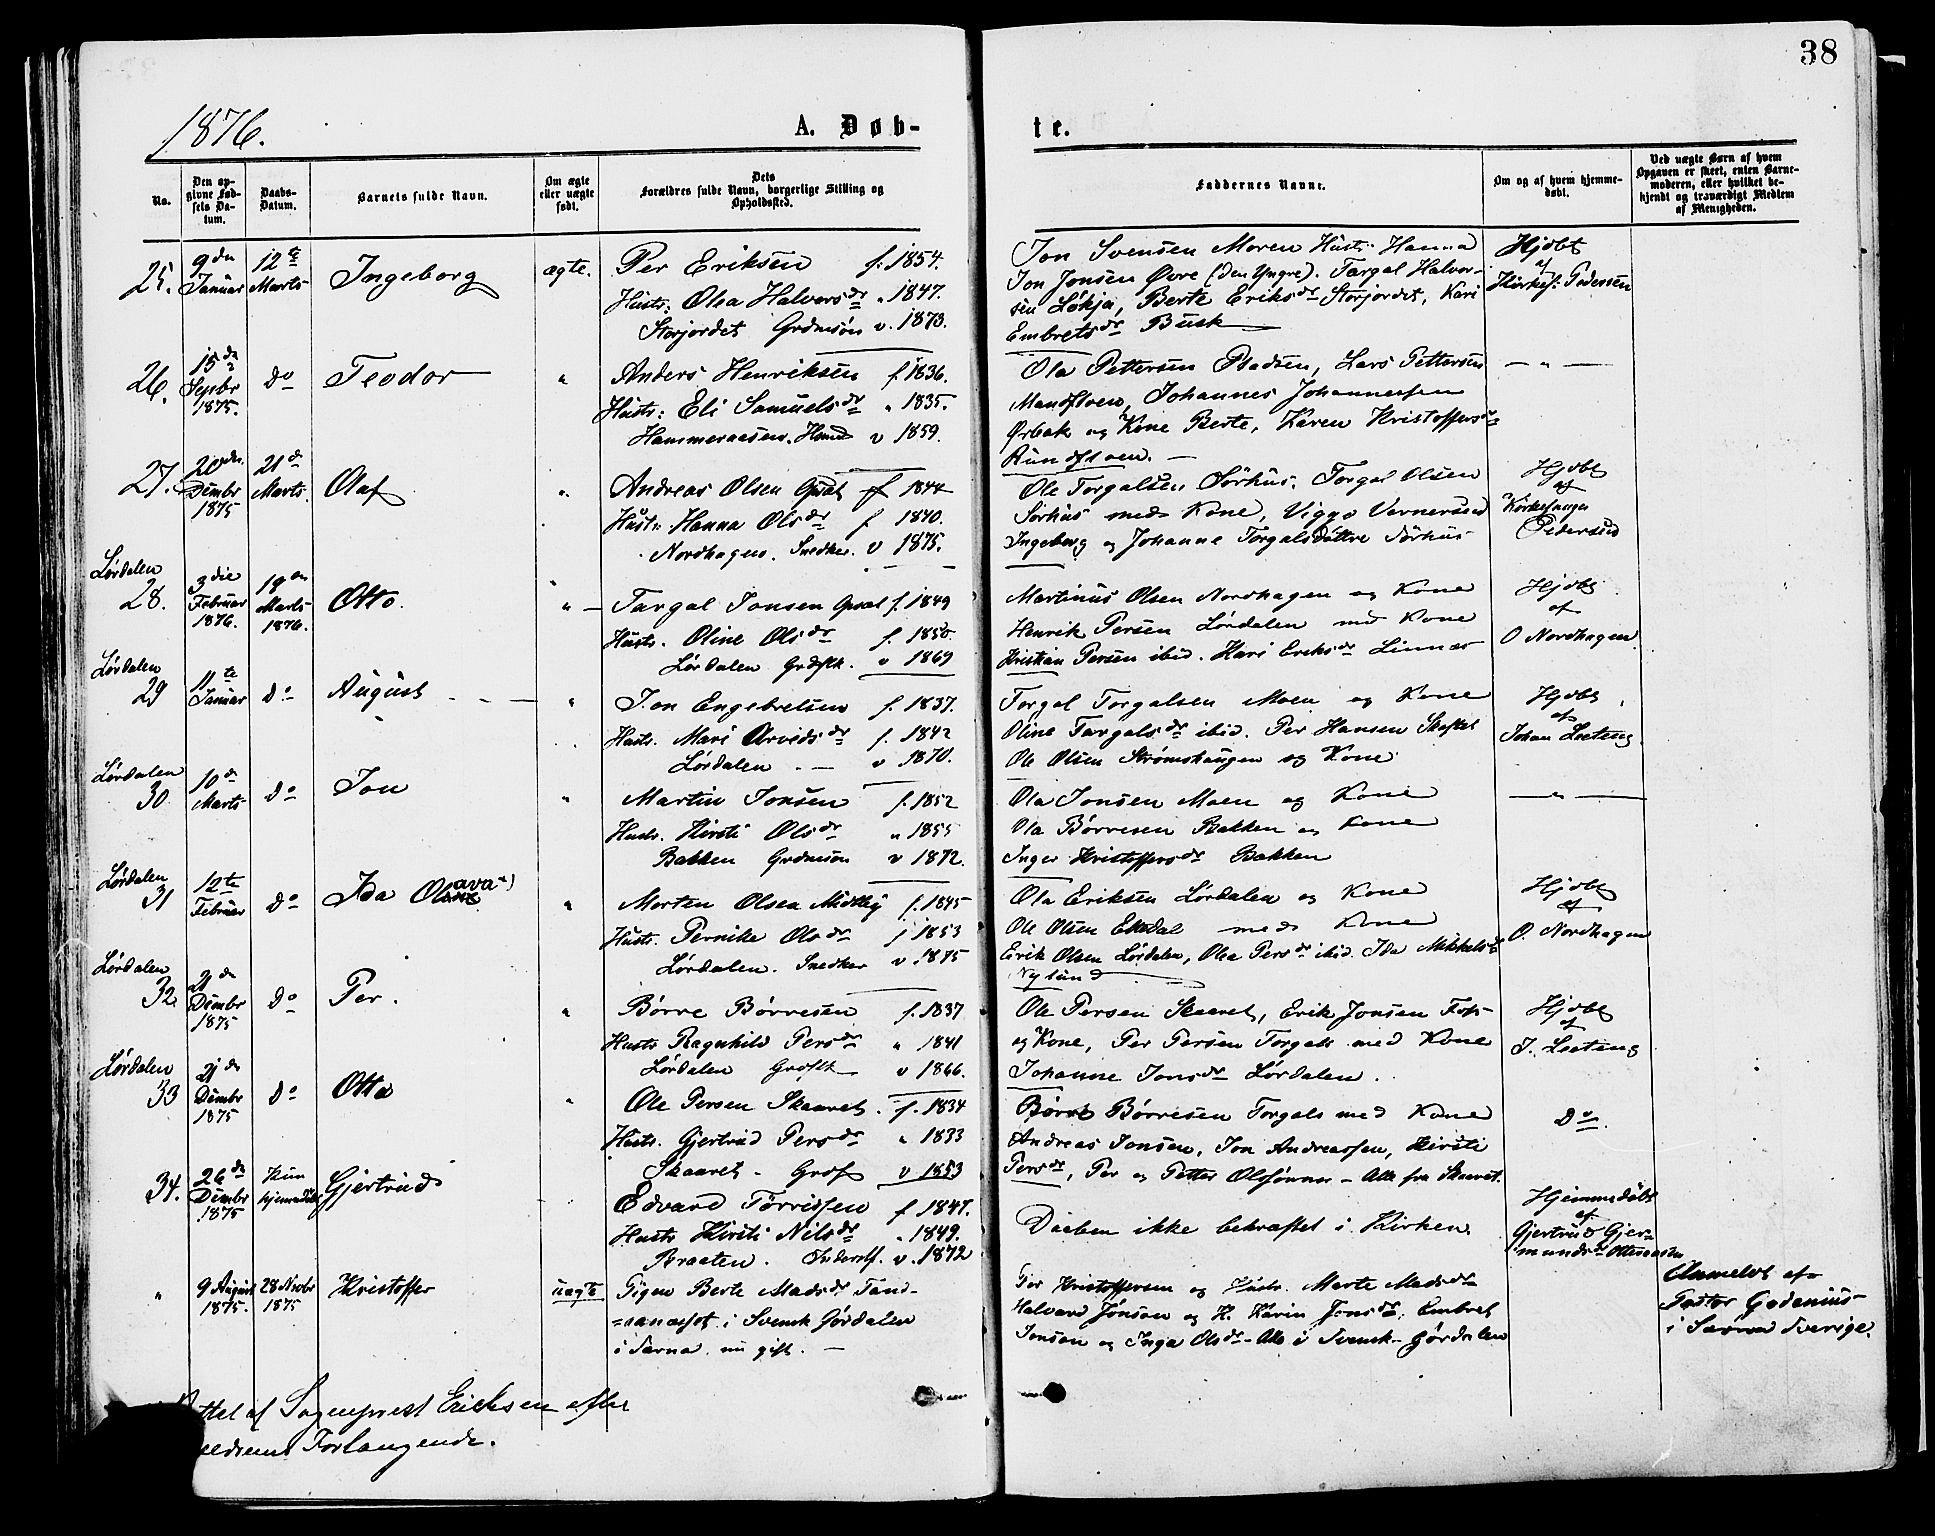 38
1876.
A. Døb-
te.
No.
Den op-
givne Fød-
sels Da-
tum.
Daabs-
Datum.
Barnets fulde Navn.
Om ægte
eller uægte
født.
Dets
Forældres fulde Navn, borgerlige Stilling og
Opholdssted.
Faddernes Navne.
Om og af hvem hjemme-
døbt.
Ved uægte Børn af hvem
Opgaven er skeet, enten Barne-
moderen, eller hvilket be-
kjendt og troværdigt Medlem
af Menigheden.
25.
9de
Januar
12te
Marts
Ingeborg
ægte.
Per Eriksen f. 1854.
Hustr: Olea Halvorsdr " 1847.
Storjordet Grdmsøn v. 1873.
Jon Svensen Moren Hustr. Hanna
Jon Jonsen Øvre (den Yngre). Targal Halvor-
sen Løkja, Berte Eriksdr Storjordet, Kari
Embretsdr Busk
Hjdbt
af
Kirkes: Pedersen
26.
15de
Sepbr
1875.
do
Teodor
"
Anders Henriksen f. 1836.
Hustr: Eli Samuelsdr " 1835.
Hammeraasen. v 1859.
Ola Pettersen, Lars Pettersen
Johannes Johannessen
Ørbak og Kone Berte, Karen Kristoffersdr
Rundfloen.
— " —
27.
20de
Dембr
1875
21de
Marts.
Olaf
"
Andreas Olsen Opsal f 1844
Hustr: Hanna Olsdr f 1840.
Nordhagen. Snedker. v 1875.
Ole Torgalsen Sørhus. Torgal Olsen
Sørhus med Kone, Viggo Vernersen
Ingeborg og Johanne Torgalsdöttre Sørhus
Hjdbt
af
Kirkesanger
Pedersen
Lørdalen
28.
3die
Februar
1876.
19de
Marts
1876.
Otto.
"
Targal Jonsen Opsal f. 1849
Hustr. Oline Olsdr f. 1850.
Lørdalen v 1869
Martinus Olsen Nordhagen og Kone
Henrik Persen Lørdalen med Kone
Kristian Persen ibid. Kari Eriksdr Linnes
Hjdbt
af
O Nordhagen.
Lørdalen
29
11te
Januar
do
August
"
Jon Engebretsen f. 1837.
Hustr. Mari Arvidsdr f. 1842
Lørdalen v .1870.
Torgal Torgalsen Moen og Kone
Oline Targalsdr ibid. Per Hansen
Ole Olsen Strømshaugen og Kone
Hjdbt
af
Johan Leeteng
Lørdalen
30
10de
Marts
do
Jon
"
Martin Jonsen f. 1852
Hustr. Kirsti Olsdr " 1855
Bakken Grdmsøn v 1872.
Ola Jonsen Moen og Kone
Ola Børresen Bakken og Kone
Inger Kristoffersdr Bakken
— " —
Lørdalen
31
12te
Februar
do
Ida Olava
"
Morten Olsen Midtby f. 1845
Hustr. Pernike Olsdr f 1853
Lørdalen. Snedker v. 1875
Ola Eriksen Lørdalen og Kone
Ole Olsen Ekedal med Kone
Erik Olsen Lørdalen, Olea Persdr ibid. Ida Mikkelsdr
Nysund
Hjdbt
af
O. Nordhagen
Lørdalen
32
Dembr
1875
do
Per.
"
Børre Børresen f. 1837
Hustr Ragnhild Persdr " 1841
Lørdalen v 1866.
Ole Persen Skaaret, Erik Jonsen
og Kone, Per Persen Torgals med Kone
Johanne Jonsdr Lørdalen.
Hjdbt
af
J. Leeteng
Lørdalen
33
Dembr
1875
do
Otto
"
Ole Persen Skaaret. f. 1834
Hustr. Gjertrud Persdr " 1833
Skaaret v 1853
Børre Børresen Torgals med Kone
Andreas Jonsen, Jon Andreassen, Kirsti
Persdr, Per og Petter Olssønner – Alle fra Skaaret.
do
34.
26de
Dembr
.1875
Kun
hjemmedøbt
Gjertrud
Edvard Tørrissen f 1847.
Hustr Kirsti Nilsdr " 1849.
Braaten. Inderstf. v. 1872
Daaben ikke bekræftet i Kirken.
Hjemmedøbt
af
Gjertrud Gjer-
mundsdr
"
9 August
1875.
28 Novbr
1875
Kristoffer
uægte
Pigen Berte Madsdr Tand-
=sanæset i Svensk Gördalen
i Særna nu gift. —
Per Kristoffersen og Hustr. Marte Madsdr
Halvard Jönsen og H. Karin Jonsdr, Embret
Jonsen og Inga Olsdr – Alle i Svensk-Gördalen
Anmeldt af
Pastor Godenius
i Særna Sverige.
af Sogneprest Ericksen efter
Forlangende.